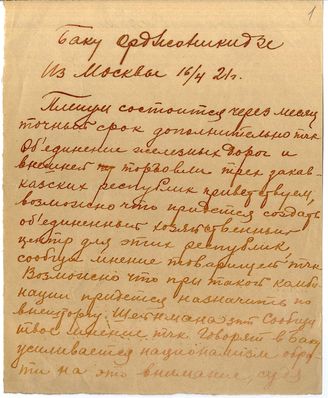 1
Баку Орджоникидзе
Из Москвы 16/4 21г.
Пленум состоится через месяц
точный срок дополнительно тчк
Объединение железных дорог и
внешней торговли трех закав-
казских республик приветствуем,
возможно что придется создать
объединенный хозяйственный
центр для этих республик,
сообщи мнение товарищей, тчк
Возможно что при такой комби
нации придется назначить по
внешторгу Шейнмана зпт Сообщи
твое мнение тчк. Говорят в Баку
усиливается национализм обра-
ти на это внимание, судя